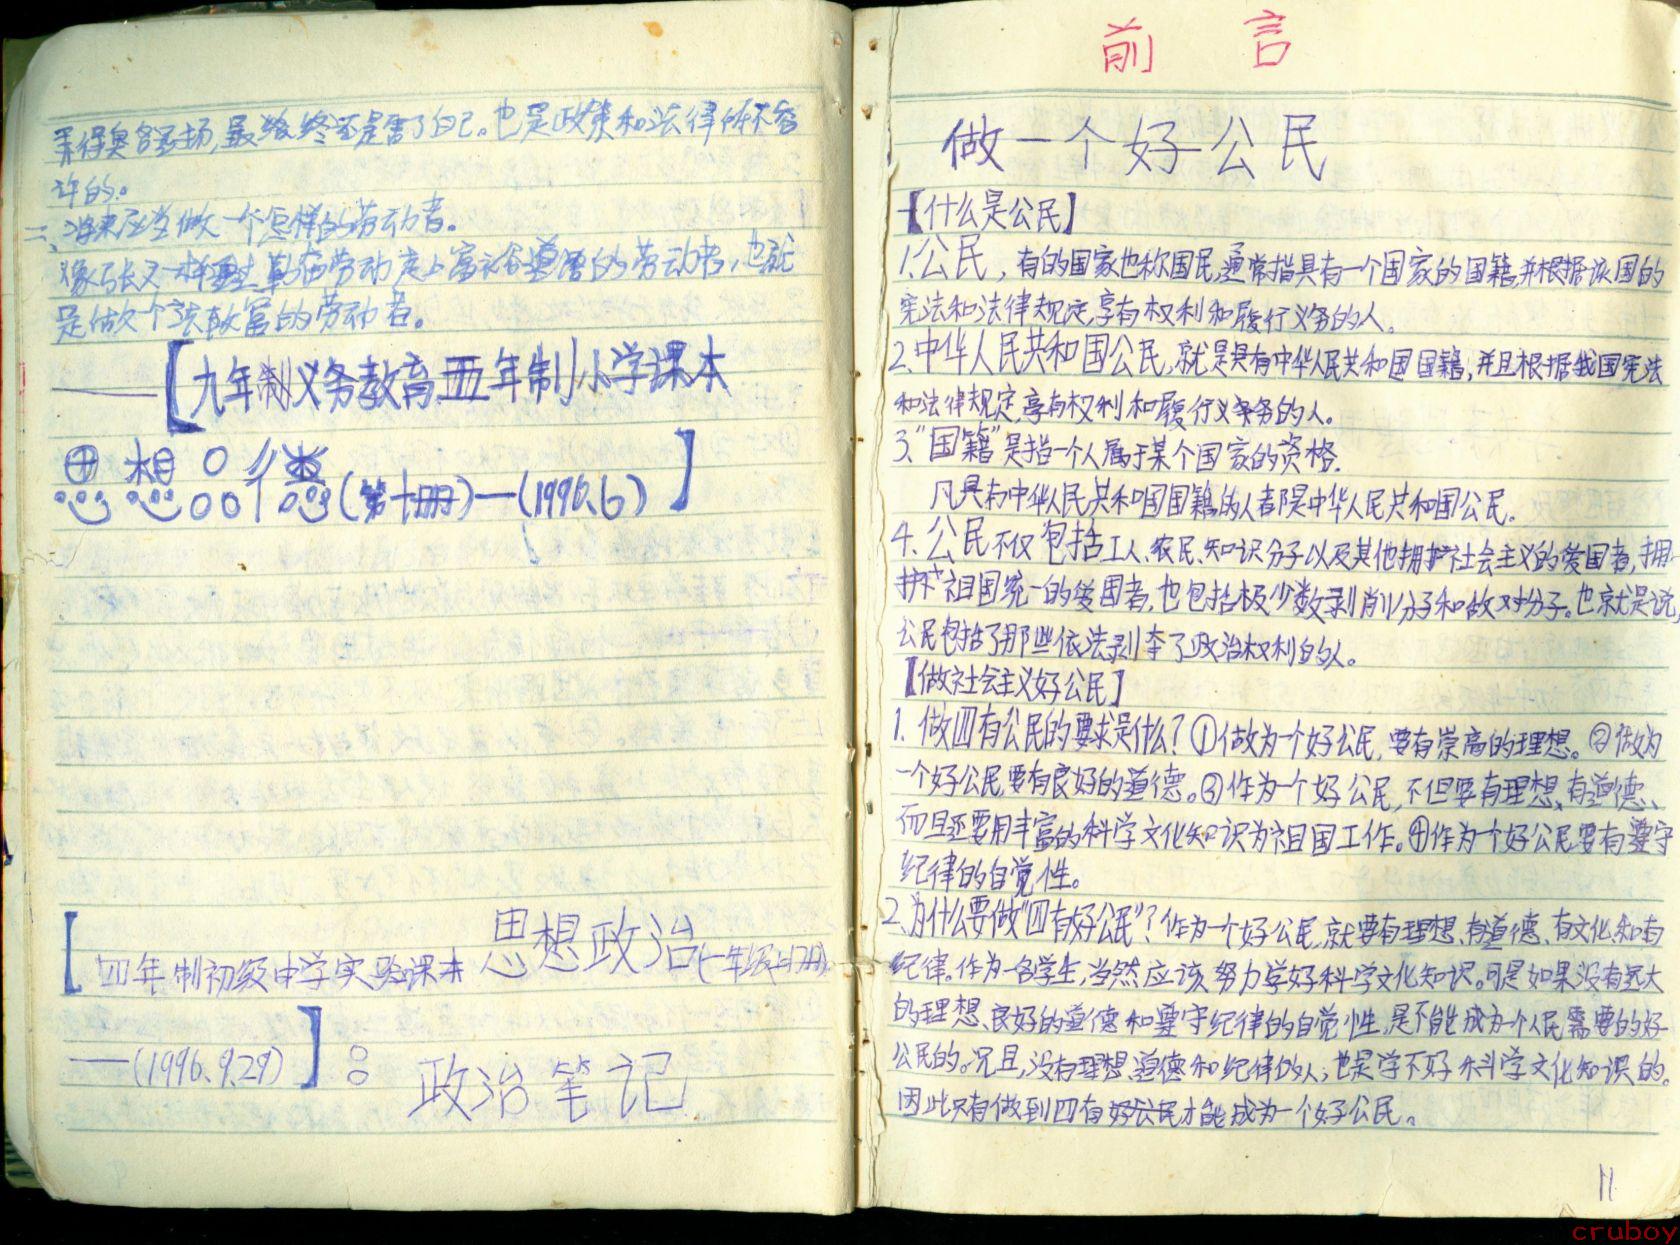 弄得臭名昭扬,最终还是害了自己。也是政策和法律所不容
许的。
二、将来应当做一个怎样的劳动者。
像张义一样靠勤奋劳动走上富裕道路的劳动者,也就
是做个法致富的劳动者。
——【九年制义务教育五年制小学课本
思想品德(第十册)—(1996.6)】
【四年制初级中学实验课本 思想政治(一年级上册)
——(1996.9.29)】:
政治笔记
前 言
做一个好公民
一【什么是公民】
1.公民,有的国家也称国民,通常指具有一个国家的国籍,并根据该国的
宪法和法律规定,享有权利和履行义务的人。
2.中华人民共和国公民,就是具有中华人民共和国国籍,并且根据我国宪法
和法律规定,享有权利和履行义务的人。
3.“国籍”是指一个人属于某个国家的资格.
凡具有中华人民共和国国籍的人都是中华人民共和国公民。
4.公民不仅包括工人、农民、知识分子以及其他拥护社会主义的爱国者,拥
护祖国统一的爱国者,也包括极少数剥削分子和敌对分子。也就是说,
公民包括了那些依法剥夺了政治权利的人。
【做社会主义好公民】
1.做四有公民的要求是什么?①做为一个好公民,要有崇高的理想。②做为
一个好公民要有良好的道德。③作为一个好公民,不但要有理想、有道德、
而且还要用丰富的科学文化知识为祖国工作。④作为一个好公民要有遵守
纪律的自觉性。
2.为什么要做“四有好公民”?作为一个好公民,就要有理想、有道德、有文化和有
纪律。作为一名学生,当然应该努力学好科学文化知识。可是如果没有远大
的理想、良好的道德和遵守纪律的自觉性,是不能成为一个人民需要的好
公民的。况且,没有理想、道德和纪律的人,也是学不好科学文化知识的。
因此只有做到四有好公民才能成为一个好公民。
11
cruboy